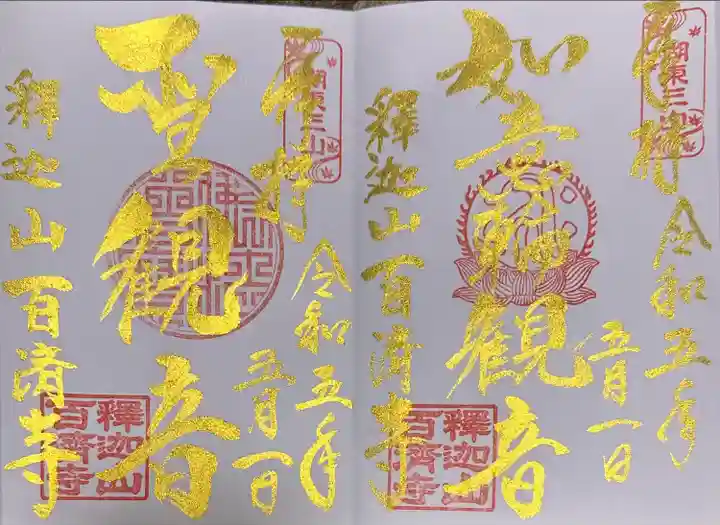 奉拝
令和五年
五月一日
如意輪観音
釋迦山百済寺
湖東三山
釋迦山
百濟寺
奉拝
令和五年
五月一日
聖観音
釈迦山百済寺
湖東三山
釋迦山
百濟寺